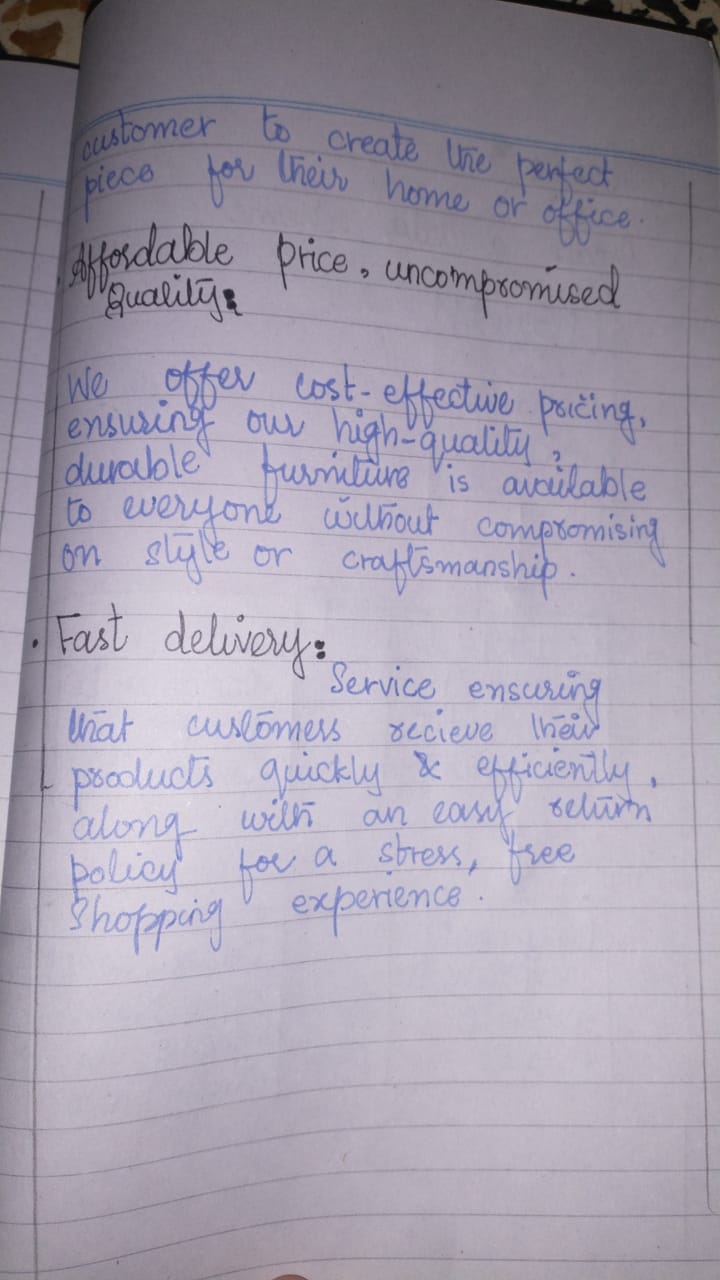 customer to create the perfect
piece for their home or office.
. Affordable price, uncompromised
Quality:
We offer cost-effective pricing,
ensuring our high-quality,
durable furniture is available
to everyone without compromising
on style or craftsmanship.
. Fast delivery:
Service ensuring
that customers recieve their
products quickly & efficiently,
along with an easy return
policy for a stress, free
Shopping experience.